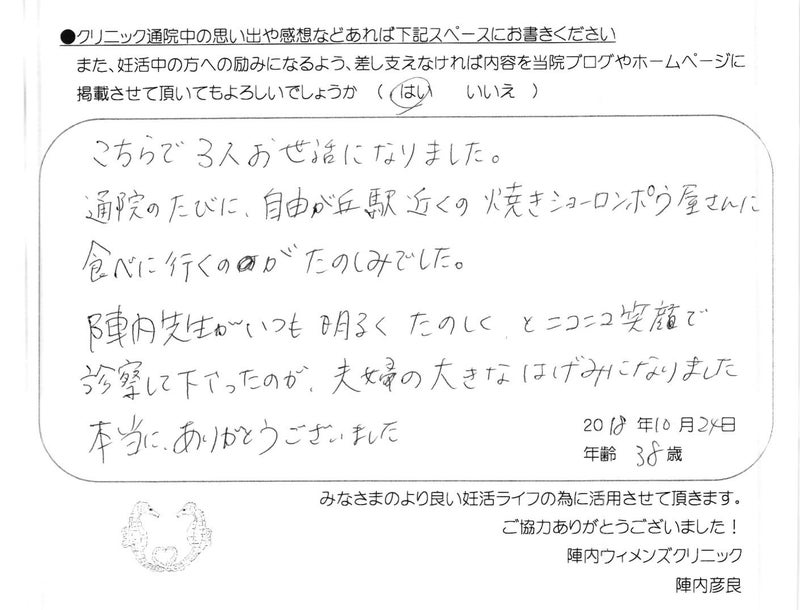 ●クリニック通院中の思い出や感想などあれば下記スペースにお書きください
また、妊活中の方への励みになるよう、差し支えなければ内容を当院ブログやホームページに
掲載させて頂いてもよろしいでしょうか （ はい いいえ ）
こちらで3人お世話になりました。
通院のたびに、自由が丘駅近くの焼きショーロンポウ屋さんに
食べに行くのがたのしみでした。
陣内先生がいつも明るくたのしく、とニコニコ笑顔で
診察して下さったのが、夫婦の大きなはげみになりました
本当に、ありがとうございました
2018年10月24日
年齢 38歳
みなさまのより良い妊活ライフの為に活用させて頂きます。
ご協力ありがとうございました！
陣内ウィメンズクリニック
陣内彦良